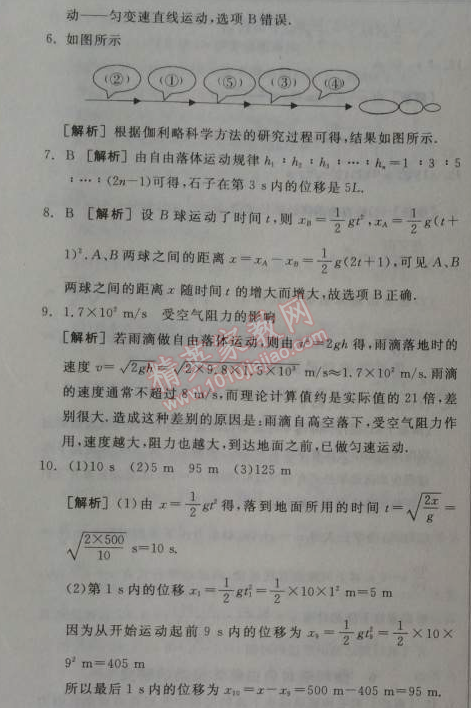 动——匀变速直线运动,选项B错误.
6. 如图所示
(②) (①) (⑤) (③) (④)
[解析] 根据伽利略科学方法的研究过程可得,结果如图所示.
7. B [解析] 由自由落体运动规律 h₁∶h₂∶h₃∶…∶hₙ=1∶3∶5
∶…∶(2n-1)可得,石子在第 3 s内的位移是 5L.
8. B [解析] 设 B球运动了时间 t,则 x_B=1/2 gt²,x_A=1/2 g(t+
1)².A、B两球之间的距离 x=x_A-x_B=1/2 g(2t+1),可见 A、B
两球之间的距离 x 随时间 t 的增大而增大,故选项 B正确.
9. 1.7×10² m/s 受空气阻力的影响
[解析] 若雨滴做自由落体运动,则由 v²=2gh 得,雨滴落地时的
速度 v=√(2gh)=√(2×9.8×1.5×10³) m/s≈1.7×10² m/s.雨滴
的速度通常不超过 8 m/s,而理论计算值约是实际值的 21 倍,差
别很大.造成这种差别的原因是:雨滴自高空落下,受空气阻力作
用,速度越大,阻力也越大,到达地面之前,已做匀速运动.
10. (1)10 s (2)5 m 95 m (3)125 m
[解析] (1)由 x=1/2 gt²得,落到地面所用的时间 t=√(2x/g)=
√(2×500/10) s=10 s.
(2)第 1 s内的位移 x₁=1/2 gt₁²=1/2×10×1² m=5 m
因为从开始运动起前 9 s内的位移为 x₉=1/2 gt₉²=1/2×10×
9² m=405 m
所以最后 1 s内的位移为 x₁₀=x-x₉=500 m-405 m=95 m.
精英家教网